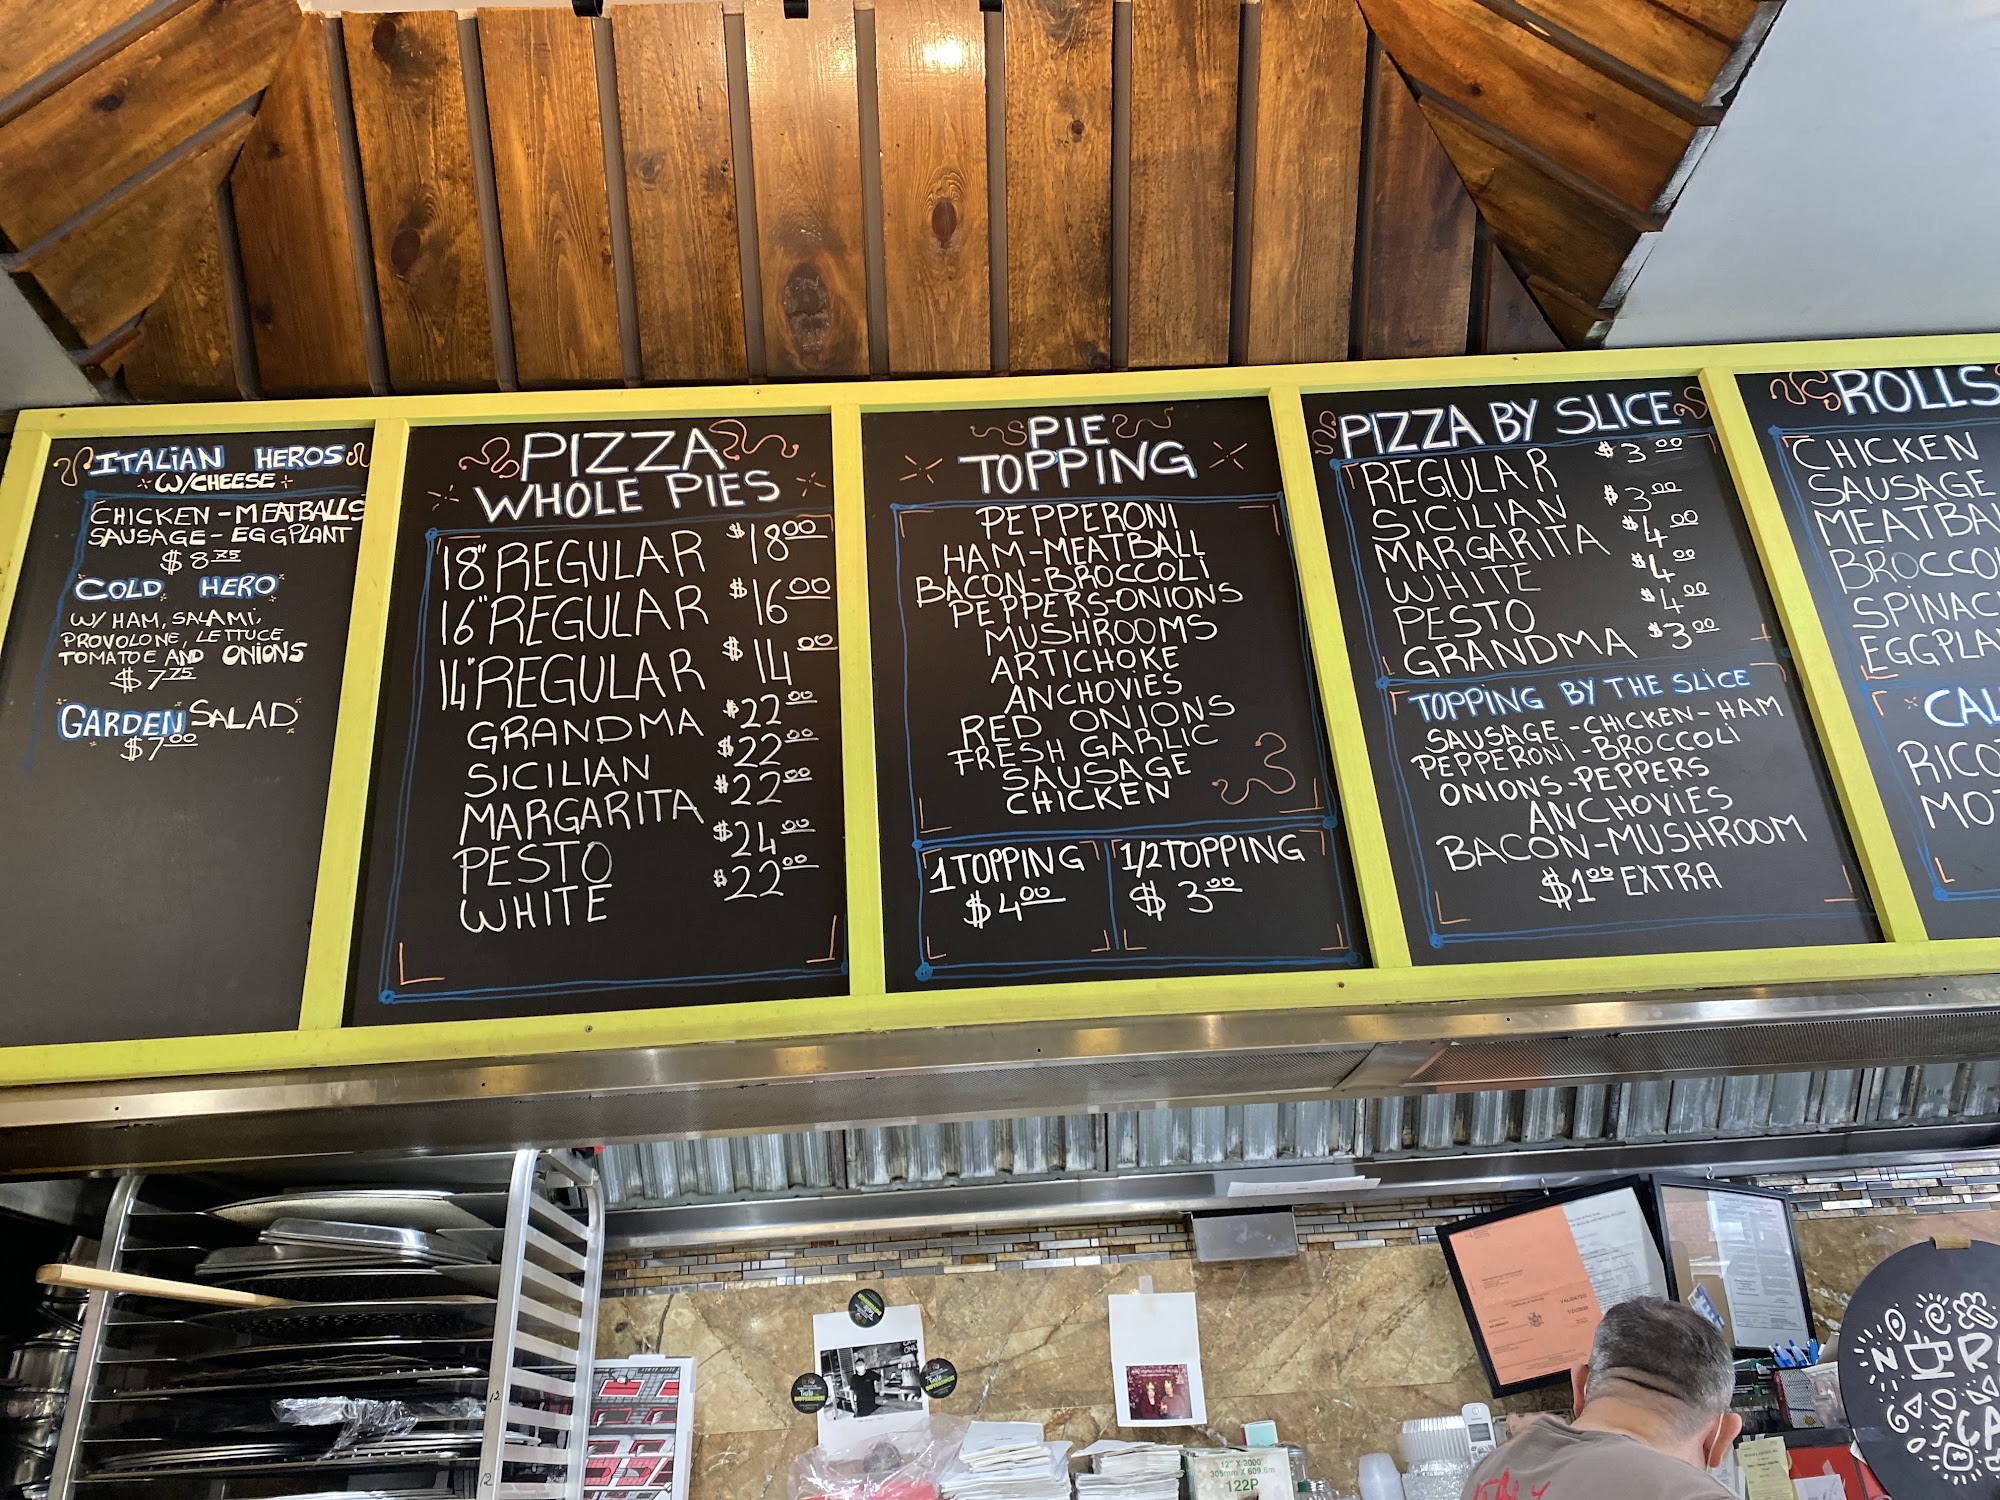 ITALIAN HEROS
W/CHEESE
CHICKEN - MEATBALLS
SAUSAGE - EGGPLANT
$8.75
COLD HERO
W/ HAM, SALAMI,
PROVOLONE, LETTUCE
TOMATOE AND ONIONS
$7.75
GARDEN SALAD
$7.00
PIZZA
WHOLE PIES
18" REGULAR $18.00
16" REGULAR $16.00
14" REGULAR $14.00
GRANDMA $22.00
SICILIAN $22.00
MARGARITA $22.00
PESTO $24.00
WHITE $22.00
PIE
TOPPING
PEPPERONI
HAM-MEATBALL
BACON-BROCCOLI
PEPPERS-ONIONS
MUSHROOMS
ARTICHOKE
ANCHOVIES
RED ONIONS
FRESH GARLIC
SAUSAGE
CHICKEN
1 TOPPING
$4.00
1/2 TOPPING
$3.00
PIZZA BY SLICE
REGULAR $3.00
SICILIAN $3.00
MARGARITA $4.00
WHITE $4.00
PESTO $4.00
GRANDMA $3.00
TOPPING BY THE SLICE
SAUSAGE - CHICKEN - HAM
PEPPERONI - BROCCOLI
ONIONS-PEPPERS
ANCHOVIES
BACON-MUSHROOM
$1.00 EXTRA
ROLLS
CHICKEN
SAUSAGE
MEATBA
BROCCO
SPINAC
EGGPLA
CAL
RICO
MOT
12" X 3000'
305mm X 609.6m
122P
12
12